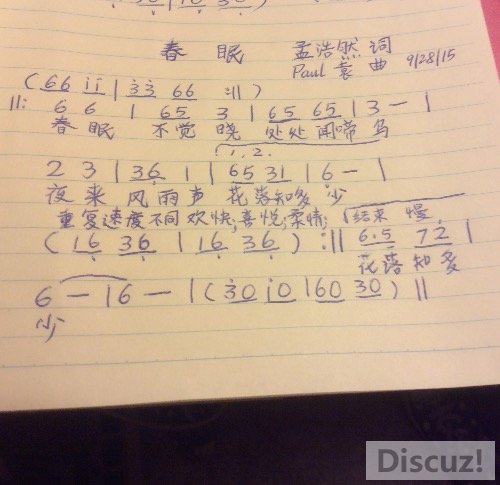 春眠 孟浩然 词
Paul 袁 曲 9/28/15
( 66 i̇i̇ | 3̇3̇ 66 :|| )
||: 6 6 | 65 3 | 65 65 | 3 — |
春 眠 不觉 晓 处处 闻啼 鸟
1, 2.
2 3 | 36 1 | 65 31 | 6 — |
夜 来 风雨 声 花落 知多 少
重复速度不同 欢快; 喜悦; 柔情; 结束 慢
( 16 36 | 16 36 ) :|| 6.5 72 |
花落 知多
6 — | 6 — | ( 3̇0 i̇0 | 60 30 ) ||
少
Discuz!